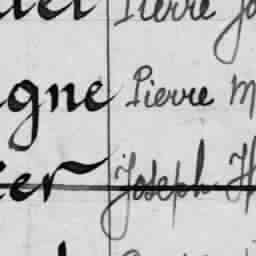 Pierre
gne Pierre M
er Joseph H